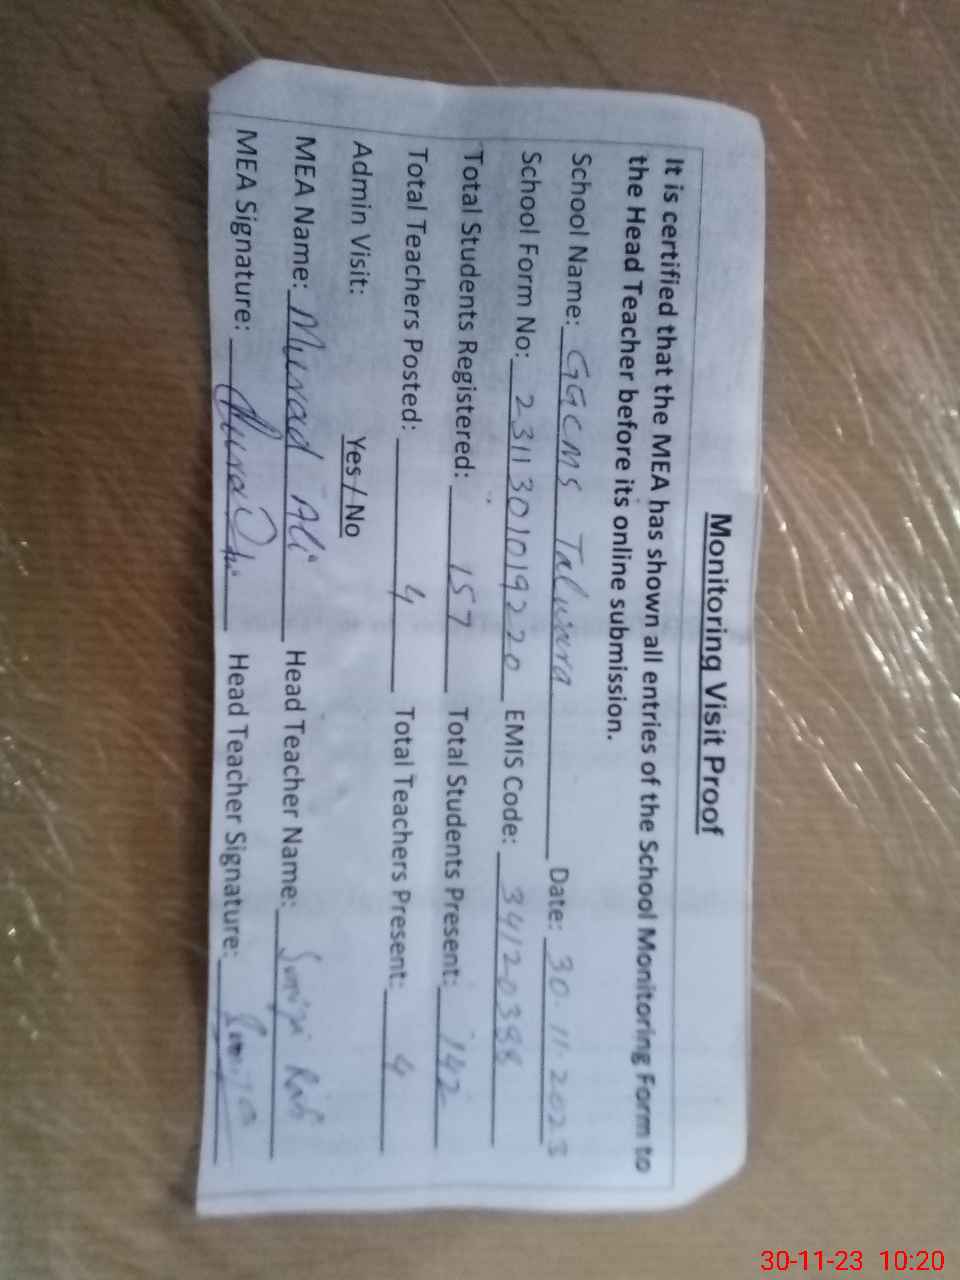 Monitoring Visit Proof
It is certified that the MEA has shown all entries of the School Monitoring Form to
the Head Teacher before its online submission.
School Name: GGCMS Date: 30-11-2023
School Form No: 2311301019220 EMIS Code: 34120388
Total Students Registered: 157 Total Students Present: 142
Total Teachers Posted: 4 Total Teachers Present: 4
Admin Visit: Yes / No
MEA Name: Murad Ali Head Teacher Name:
MEA Signature: Head Teacher Signature:
30-11-23 10:20